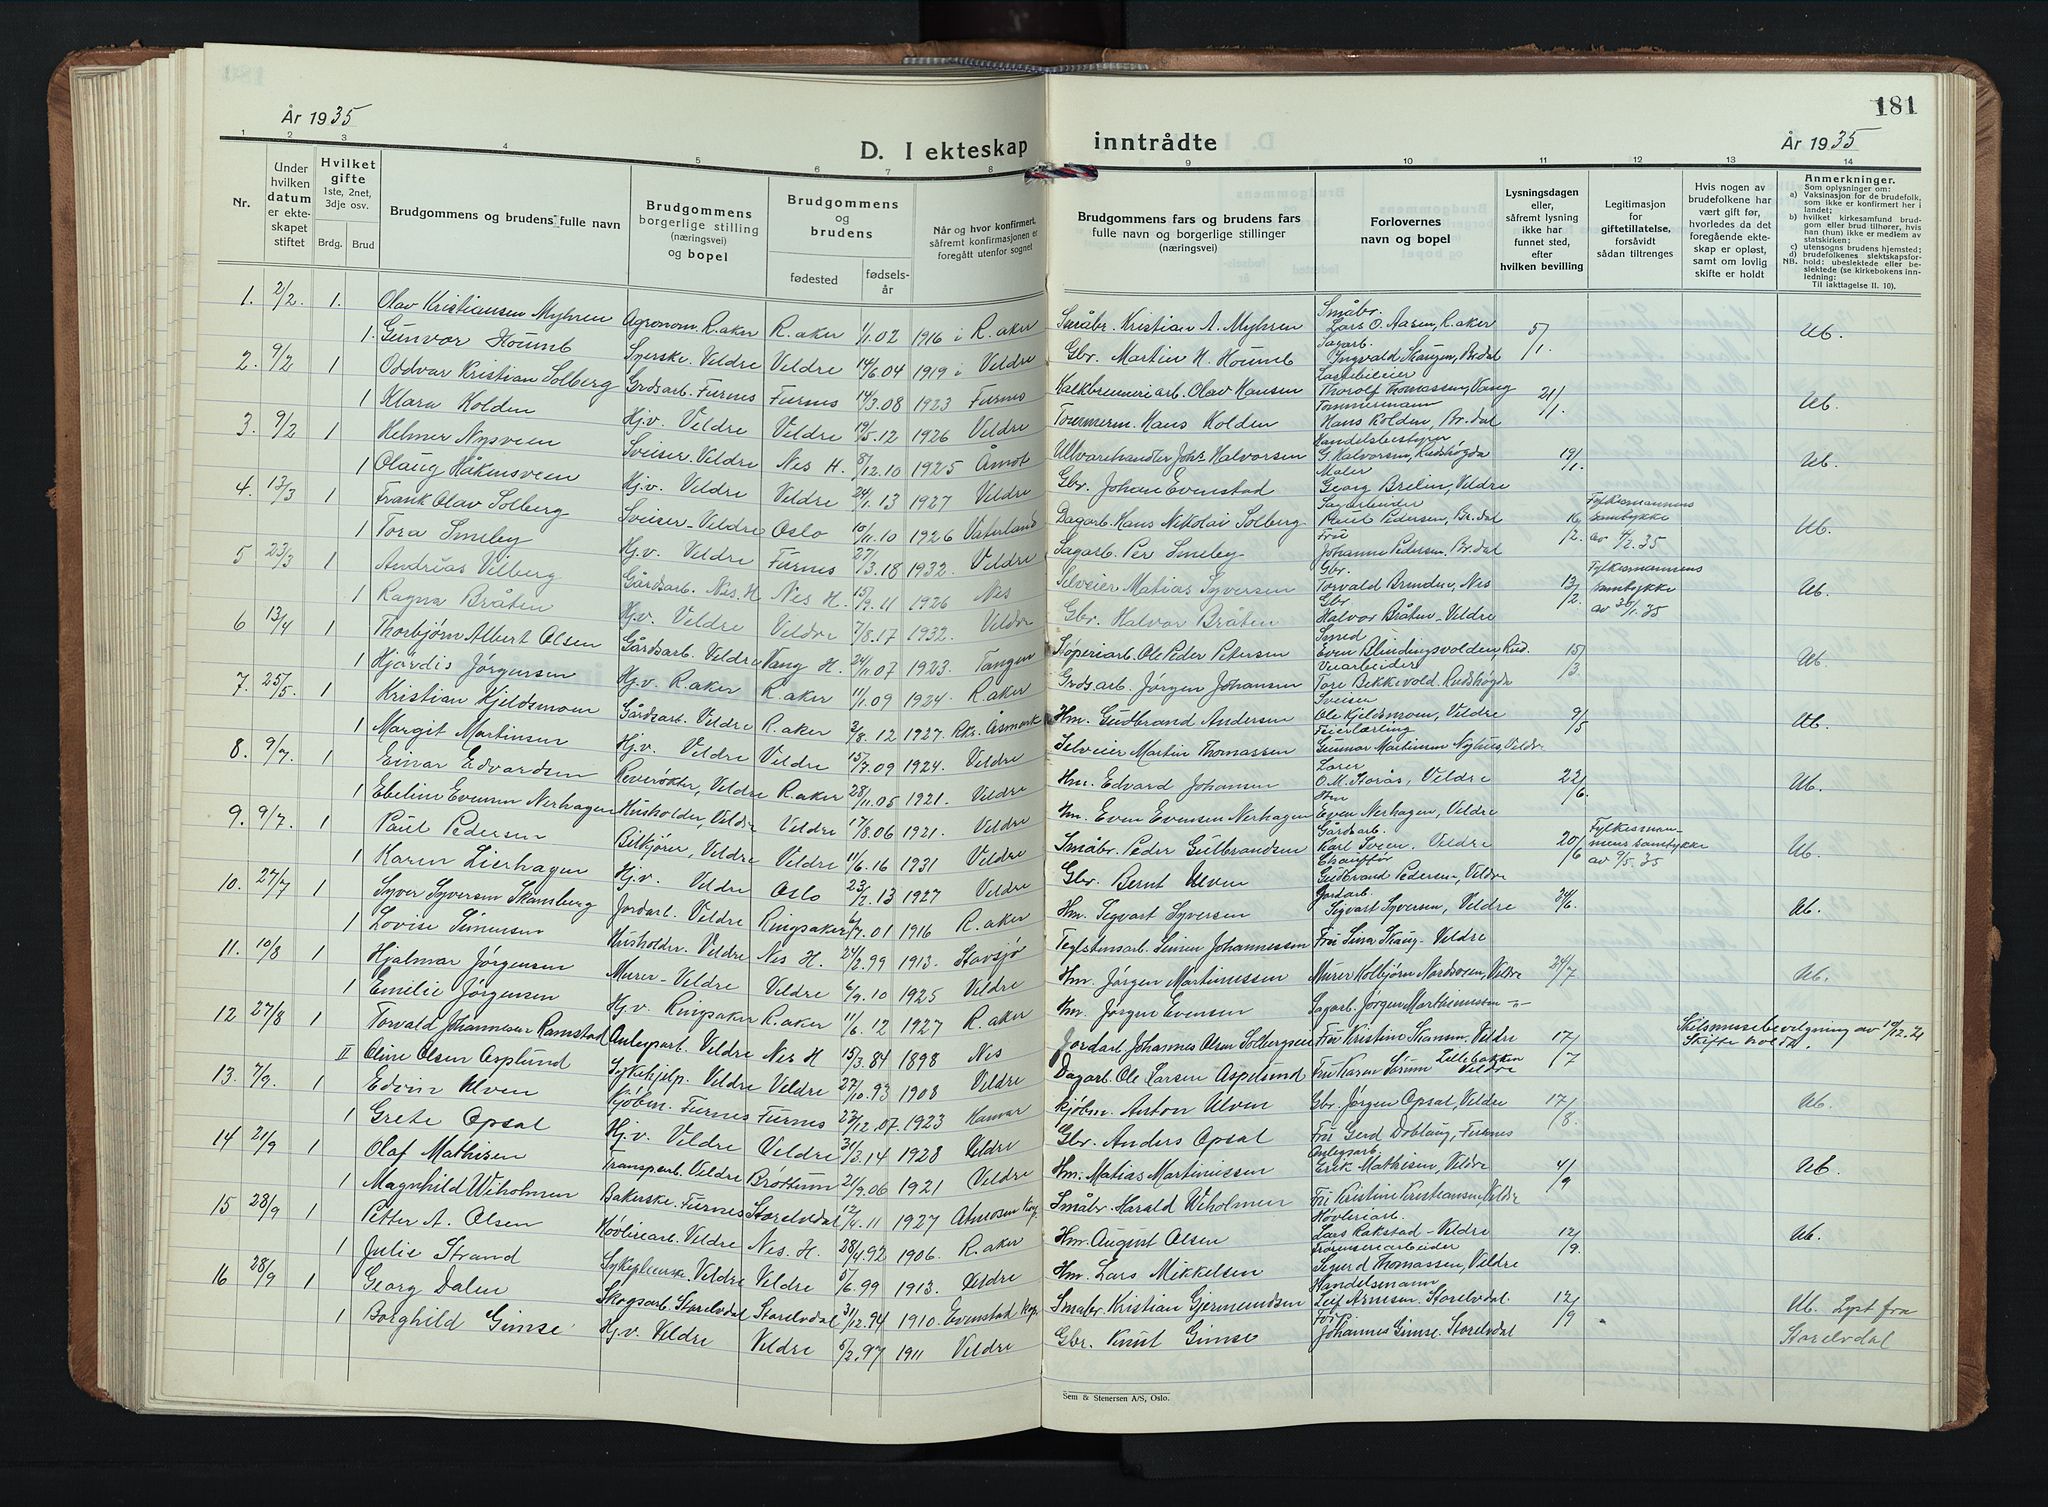 År 1935
D. I ekteskap inntrådte
År 1935
181
1 2 3 4 5 6 7 8 9 10 11 12 13 14
Nr.
Under hvilken datum er ekteskapet stiftet
Hvilket gifte 1ste, 2net, 3dje osv.
Brdg. Brud
Brudgommens og brudens fulle navn
Brudgommens borgerlige stilling (næringsvei) og bopel
Brudgommens og brudens
fødested
fødselsår
Når og hvor konfirmert, såfremt konfirmasjonen er foregått utenfor sognet
Brudgommens fars og brudens fars fulle navn og borgerlige stillinger (næringsvei)
Forlovernes navn og bopel
Lysningsdagen eller, såfremt lysning ikke har funnet sted, efter hvilken bevilling
Legitimasjon for giftetillatelse, forsåvidt sådan tiltrenges
Hvis nogen av brudefolkene har vært gift før, hvorledes da det foregående ekteskap er opløst, samt om lovlig skifte er holdt
Anmerkninger.
Som oplysninger om:
a) Vaksinasjon for de brudefolk, som ikke er konfirmert her i landet;
b) hvilket kirkesamfund brudgom eller brud tilhører, hvis han (hun) ikke er medlem av statskirken;
c) utensogns brudens hjemsted;
d) brudefolkenes slektskapsforhold: ubeslektede eller beslektede (se kirkebokens innledning:
NB.
Til iakttagelse II. 10).
1. 2/2. 1. Olav Kristiansen Myhren Agronom, R.aker R.aker 1/1.02 1916 i R.aker Småbr. Kristian A. Myhren Småbr. Lars O. Aasen, R.aker 5/1. Ub.
1. Gunvor Houmb Syerske. Veldre Veldre 14/6.04 1919 i Veldre Gbr. Martin H. Houmb Sagarb. Ingvald Skaugen, Br.dal
2. 9/2 1 Oddvar Kristian Solberg Grdsarb. Furnes Furnes 14/3.08 1923 Furnes Kalkbrenneriarb. Olav Hansen Lastebileier Thorolf Thomassen, Vang 21/1. Ub.
1 Klara Kolden Hj.v. Veldre Veldre 19/5.12 1926 Veldre Tømmerm. Hans Kolden Tømmermann Hans Kolden, Br.dal
3. 9/2 1 Helmer Nysveen Sveiser. Veldre Nes H. 8/12.10 1925 Åmot Ullvarehandler Johs Halvorsen Handelsbestyrer G. Halvorsen, Rudshøgda 19/1. Ub.
1 Olaug Håkensveen Hj.v. Veldre Veldre 24/1.13 1927 Veldre Gbr. Johan Evenstad Maler Georg Brelin, Veldre
4. 13/3 1 Frank Olav Solberg Sveiser-Veldre Oslo 10/11.10 1926 Vaterland Dagarb. Hans Nikolai Solberg Sagarbeider Paul Pedersen, Br.dal 16/2. Fylkesmannens samtykke av 4/2.35 Ub.
1 Tora Smeby Hj.v. Veldre Furnes 27/3.18 1932. Veldre Sagarb. Per Smeby Frue Johanne Pedersen. Br.dal
5 23/3 1 Andreas Vilberg Gårdsarb. Nes.H Nes H. 15/9.11 1926 Nes Selveier Matias Syversen Gbr. Torvald Brenden, Nes 13/2. Fylkesmannens samtykke av 30/1.35 Ub.
1 Ragna Bråten Hj.v. Veldre Veldre 7/8.17 1932. Veldre Gbr. Halvor Bråten Gbr. Halvor Bråten - Veldre
6 13/4 1 Thorbjørn Albert Olsen Gårdsarb. Veldre Vang H. 24/11.07 1923. Tangen Støperiarb. Ole Peder Petersen Smed Even Blindingsvolden, Rud. 15/3. Ub.
1 Hjørdis Jørgensen Hj.v. R.aker R.aker 11/1.09 1924. R.aker Grds.arb. Jørgen Johansen Veiarbeider Tore Bekkevold. Rudshøgda
7. 25/5. 1 Kristian Kjeldsmoen Gårdsarb. Veldre R.aker 3/8.12 1927. Rkr. Åsmark Hm. Gudbrand Andersen Sveiser Ole Kjeldsmoen, Veldre 9/5 Ub.
1 Margit Martinsen Hj.v. Veldre Veldre 15/7.09 1924. Veldre Selveier Martin Thomassen Feierlærling Gunnar Martinsen Nyhus, Veldre
8. 9/7. 1 Einar Edvardsen Reverøkter, Veldre R.aker 28/11.05 1921. Veldre Hm. Edvard Johansen Lærer O.M. Storås, Veldre 22/6. Ub.
1 Ebeline Evensen Nerhagen Husholder, Veldre Veldre 17/8.06 1921. Veldre Hm. Even Evensen Nerhagen Hm Even Nerhagen, Veldre
9. 9/7. 1 Paul Pedersen Bilkjører, Veldre Veldre 11/6.16 1931 Veldre Småbr. Peder Gulbrandsen Gårdsarb. Karl Sveen. Veldre 20/6 Fylkesmannens samtykke av 9/5.35 Ub.
1 Karen Lierhagen Hj.v. Veldre Oslo 23/2.13 1927 Veldre Gbr. Bernt Ulven Chauffør Gudbrand Pedersen, Veldre
10. 27/7 1 Syver Syversen Skansberg Jordarb. Veldre Ringsaker 6/7.01 1916 R.aker Hm. Segvart Syversen Jordarb. Sigvart Syversen, Veldre 24/6. Ub.
1 Lovise Simensen Husholder. Veldre Nes H. 24/2.99 1913. Stavsjø Teglstensarb. Simen Johannessen Fru Sina Skaug - Veldre
11. 10/8 1 Hjalmar Jørgensen Murer - Veldre Veldre 6/9.10 1925 Veldre Hm. Jørgen Martinussen Murer Kolbjørn Nordsveen, Veldre 24/7 Ub.
1 Emelie Jørgensen Hj.v. Ringsaker R.aker 11/6.12 1927 R.aker Hm. Jørgen Evensen Sagarb. Jørgen Marthinussen -"-
12 27/8 1 Torvald Johannesen Ramstad Anlegsarb. Veldre Nes H 15/3.84 1898 Nes Jordarb. Johannes Olsen Solbergsen Fru Kristine Skansen. Veldre 17/7 Skilsmissebevilgning av 10/12.21 Skifte holdt.
II Oline Olsen Asplund Sykehjelp. Veldre Veldre 27/10.93 1908 Veldre Dagarb. Ole Larsen Aspelund Fru Karen Simen Lillebakken Veldre
13. 7/9. 1 Edvin Ulven Kjøbm. Furnes Furnes 23/12.07. 1923 Hamar Kjøbm. Anton Ulven Gbr. Jørgen Opsal, Veldre 17/8. Ub.
1 Grete Opsal Hj.v. Veldre Veldre 31/3.14 1928 Veldre Gbr. Anders Opsal Fru Gerd Doblaug, Furnes
14 21/9 1 Olaf Mathisen Transparb. Veldre Brøttum 21/9.06 1921 Veldre Hm. Matias Martinussen Anlegsarb. Erik Mathisen, Veldre 4/9 Ub.
1 Magnhild Wiholmen Bakerske. Furnes Storelvdal 12/4.11 1927 Atnosen kap. Småbr. Harald Wiholmen Fru Kristine Kristiansen, Veldre
15 28/9 1 Petter A. Olsen Høvleriarb. Veldre Nes. H. 28/4.92 1906. R.aker Hm. August Olsen Høvleriarb. Lars Rakstad - Veldre 12/9. Ub.
1 Julie Strand Sykepleierske. Veldre Veldre 5/6.99 1913. Veldre Hm. Lars Mikkelsen Sigurd Thomassen, Veldre
16 28/9 1 Georg Dalen Skogsarb. Storelvdal Storelvdal 31/12.94 1910. Evenstad kap. Småbr. Kristian Gjermundsen Handelsmann Leif Arnesen. Storelvdal. 12/9 Ub. Lyst fra Storelvdal
1 Borghild Gimse Hj.v. Veldre Veldre 5/2.97 1911 Veldre Gbr. Knut Gimse Johannes Gimse. Storelvdal
Sem & Stenersen A/S, Oslo.